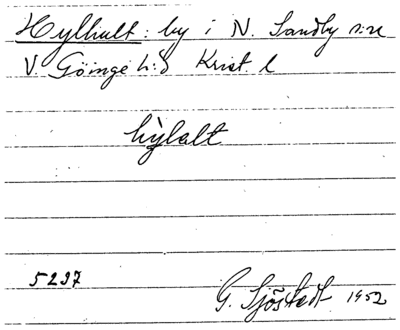 Hylhult: by i N. Sandby s:n
V. Göinge h:d Krist. l
hỳlalt
5297
G. Sjöstedt 1952